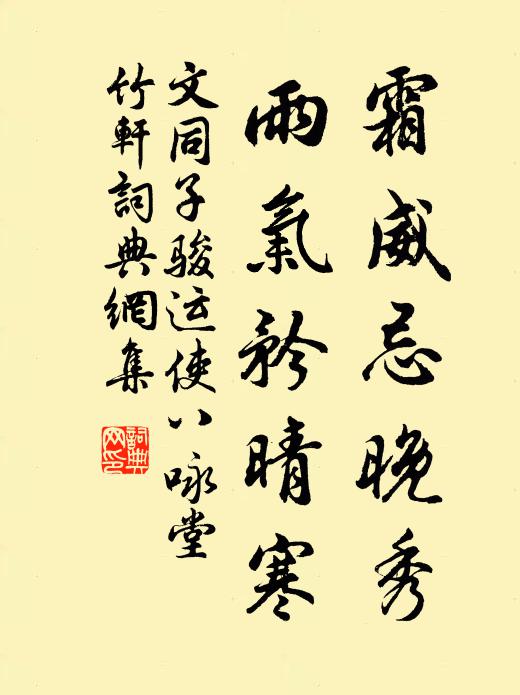 霜威忌晚秀
雨氣矜晴寒
文同子駿运使八咏堂
竹軒詞典網集
詞典网印